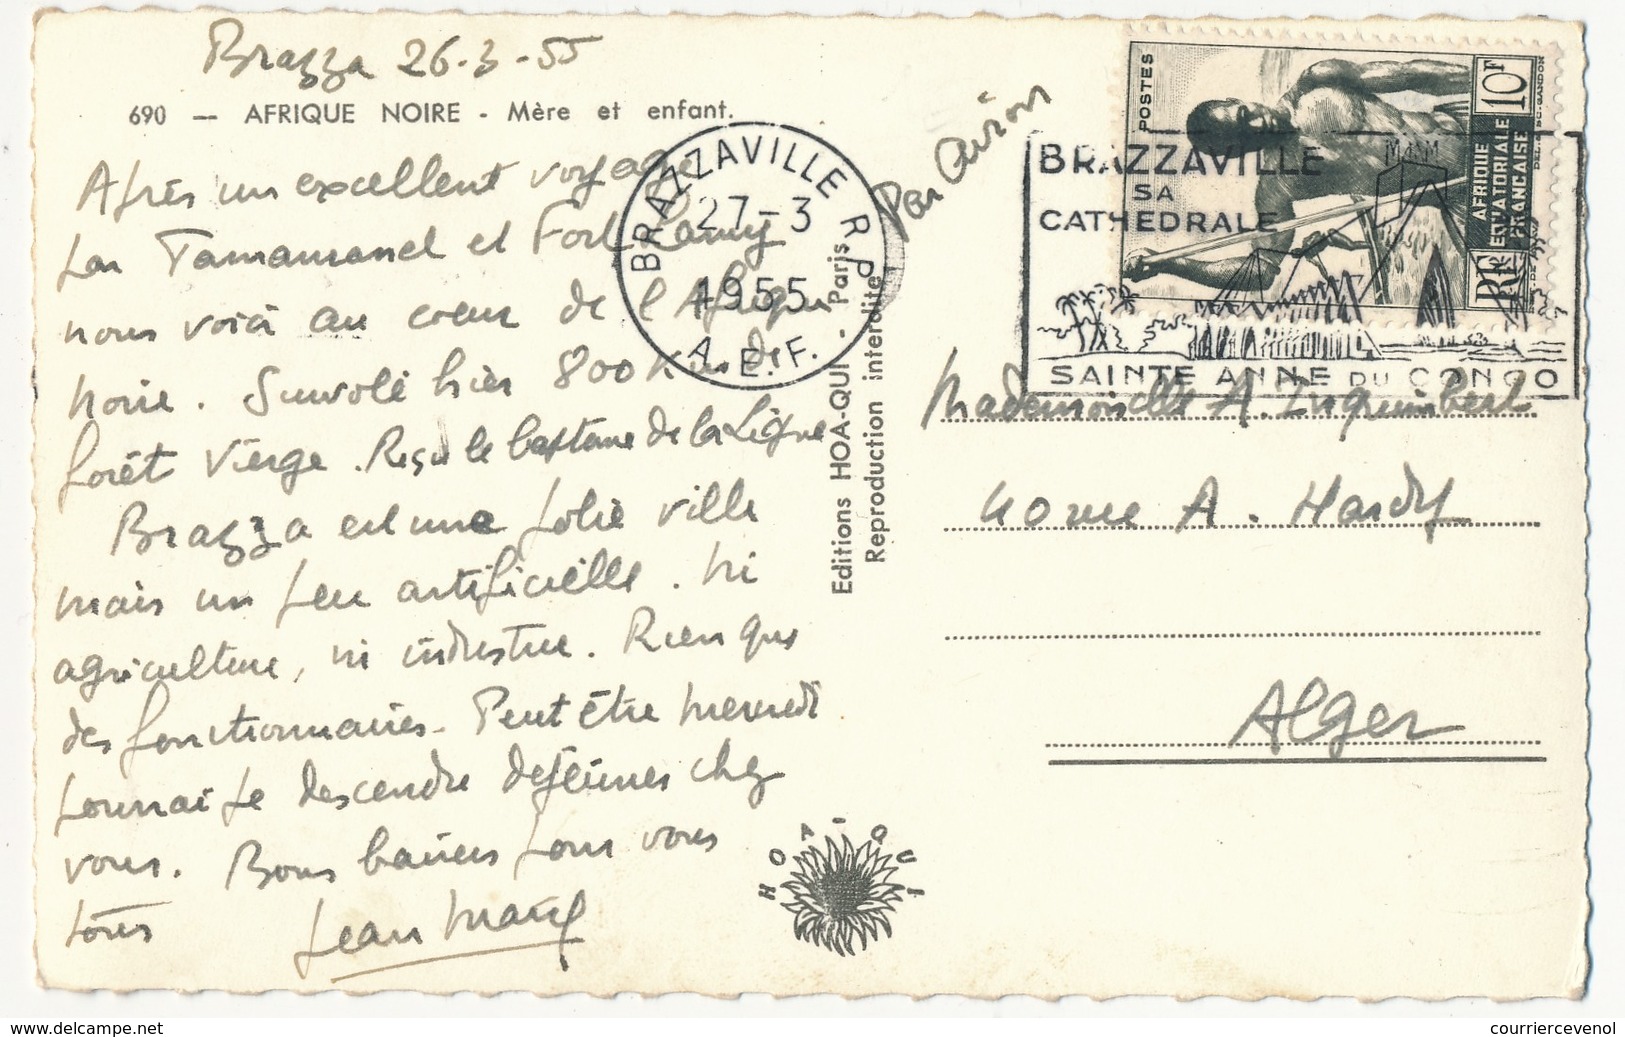 Brazza 26-3-55
690 — AFRIQUE NOIRE - Mère et enfant.
Après un excellent voyage
par Tamanrasset et Fort Lamy
nous voici au coeur de l'Afrique
Noire. Survolé hier 800 Kms de
forêt vierge. Reçu le baptême de la Ligne
Brazza est une jolie ville
mais un peu artificielle. Ni
agriculture, ni industrie. Rien que
des fonctionnaires. Peut être mercredi
pourrai je descendre déjeuner chez
vous. Bons baisers pour vous
tous
Jean Marie
BRAZZAVILLE R.P.
27-3
1955
A.E.F.
Editions HOA-QUI - Paris
Reproduction interdite
HOA-QUI
Par Avion
BRAZZAVILLE
SA
CATHEDRALE
SAINTE ANNE DU CONGO
POSTES
10F
AFRIQUE
EQUATORIALE
FRANCAISE
RF
Mademoiselle A. Inguimbert
A. Hardy
Alger
courriercevenol
www.delcampe.net